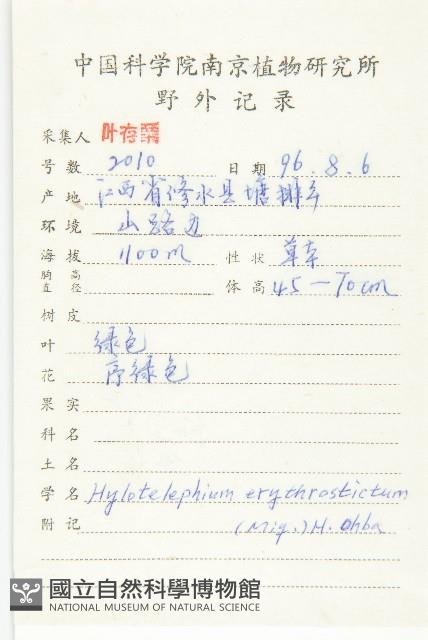 中国科学院南京植物研究所
野外记录
采集人 叶存粟
号数 2010 日期 96.8.6
产地 江西省修水县塘排乡
环境 山路边
海拔 1100m 性状 草本
胸高直径 体高 45—70cm
树皮
叶 绿色
花 序绿色
果实
科名
土名
学名 Hylotelephium erythrostictum
附记 (Miq.) H. Ohba
國立自然科學博物館
NATIONAL MUSEUM OF NATURAL SCIENCE